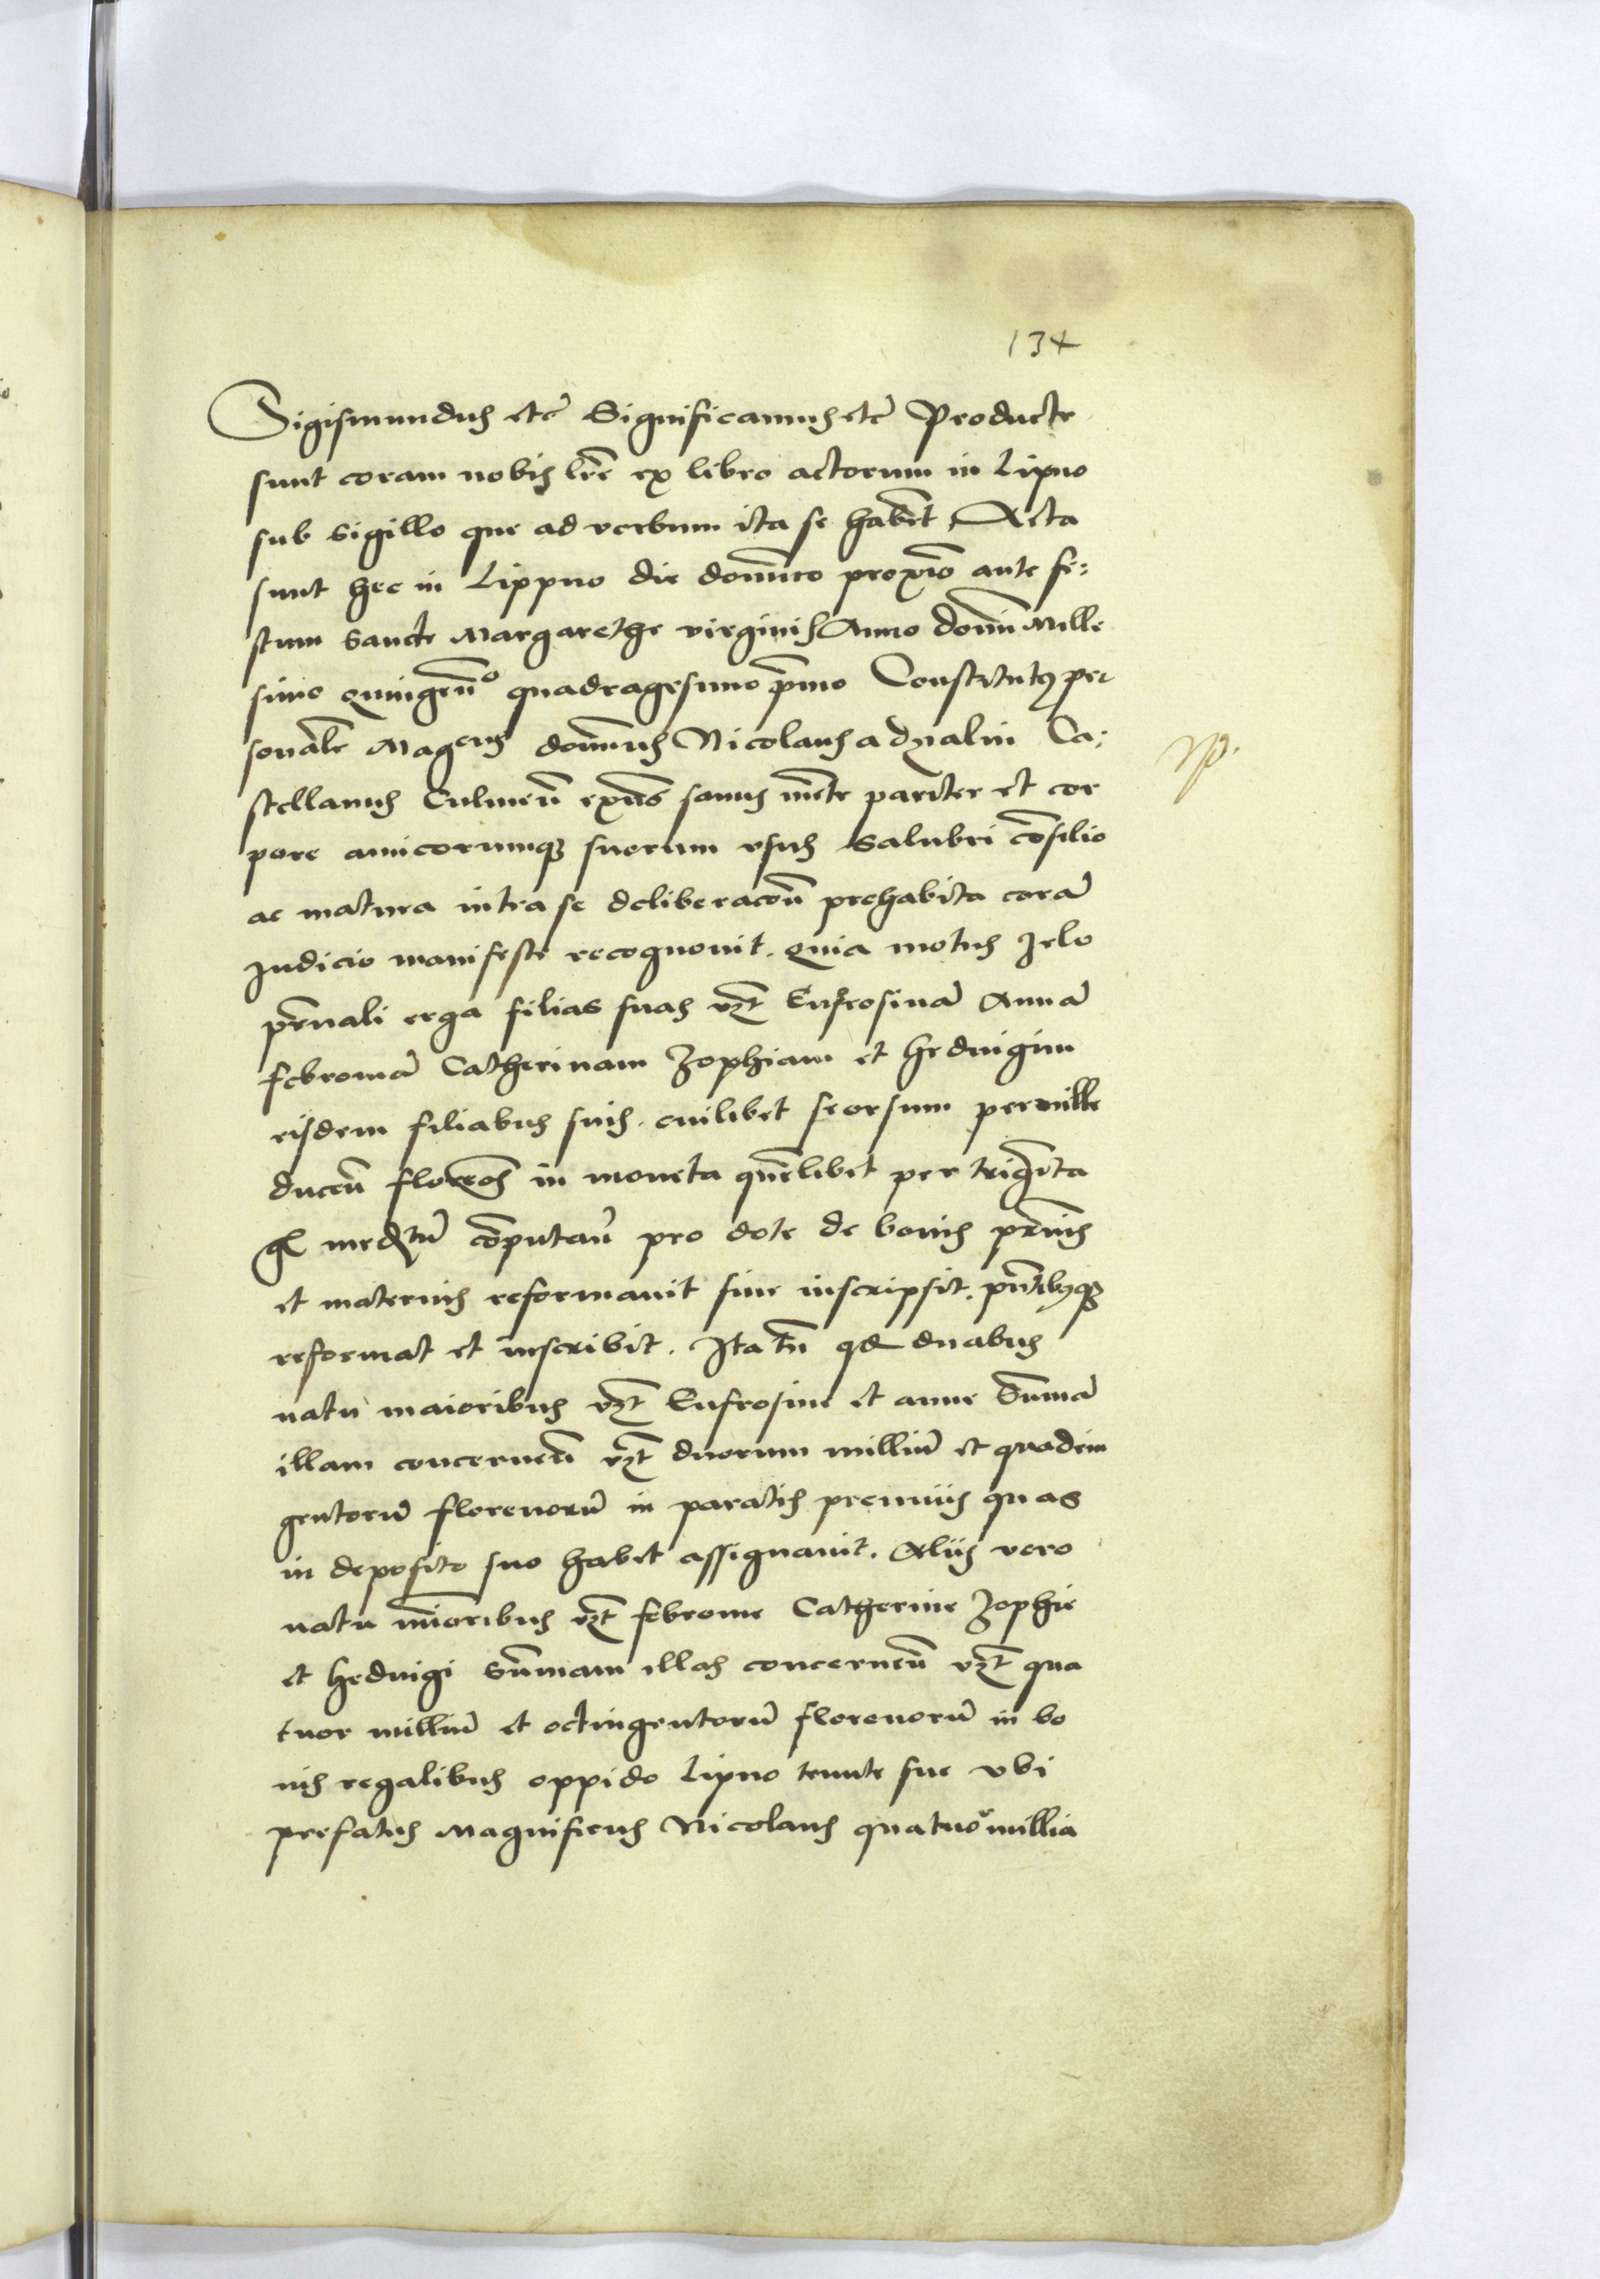 134
Sigismundus etc̄ Significamus etc̄ Producte
sunt coram nobis lr̄e ex libro actorum in Lipno
sub sigillo que ad verbum ita se habēt Acta
sunt hec in Lippno die domīco proxīo ante fe:
stum sancte Margarethe virginis Anno domī Mille
simo quingeñᵒ quadragesimo p̄mo Constitutꝯ per
sonalr̄ Magcus domīnus Nicolaus a dzalin Ca:
stellanus Culmeñ exñs sanus mēte pariter et cor
pore amicorumqꝫ suorum vsus salubri cōsilio
ac matura intra se deliberacōn̄ prehabita corā
Judicio manifeste recognouit. quia motus zelo
pr̄nali erga filias suas vꝫt Eufrosinā Annā
febromā Catherinam Zophiam et Heduigim
eisdem filiabus suis. cuilibet seorsum per mille
duceñ florenos in moneta quēlibet per trigīta
gͦ medtū cōputañ pro dote de bonis pr̄nis
et maternis reformauit siue inscripsit. pn̄tibꝯqꝫ
reformat et inscribit. Ita tn̄ qd duabus
natu maioribus vꝫt Eufrosine et anne Sum̄ā
illam concerneñ vꝫt duorum milliū et quadrin
gentorū florenorū in paratis pecuniis quas
in deposito suo habet assignauit. Aliis vero
natu mīoribus vꝫt febrome Catherine Zophie
et heduigi Sum̄mam illas concerneñ vꝫt qua
tuor milliū et octingentorū florenorū in bo
nis regalibus oppido Lipno tenute sue vbi
prefatus Magnificus Nicolaus quatuor millia